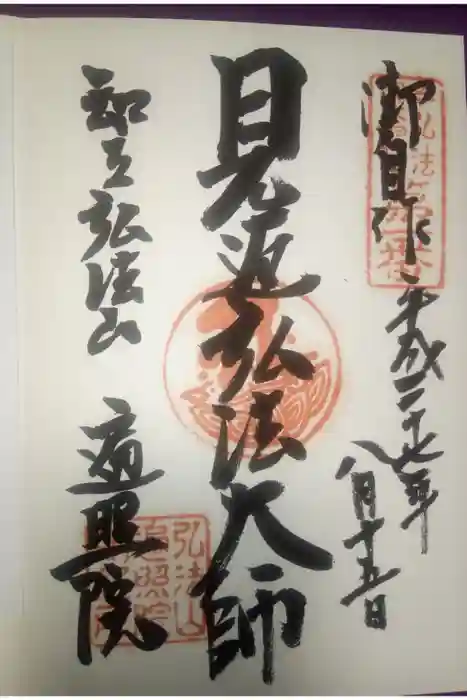 御自作
平成二十七年
八月十五日
見返弘法大師
知立弘法山
遍照院
弘法山
遍照院